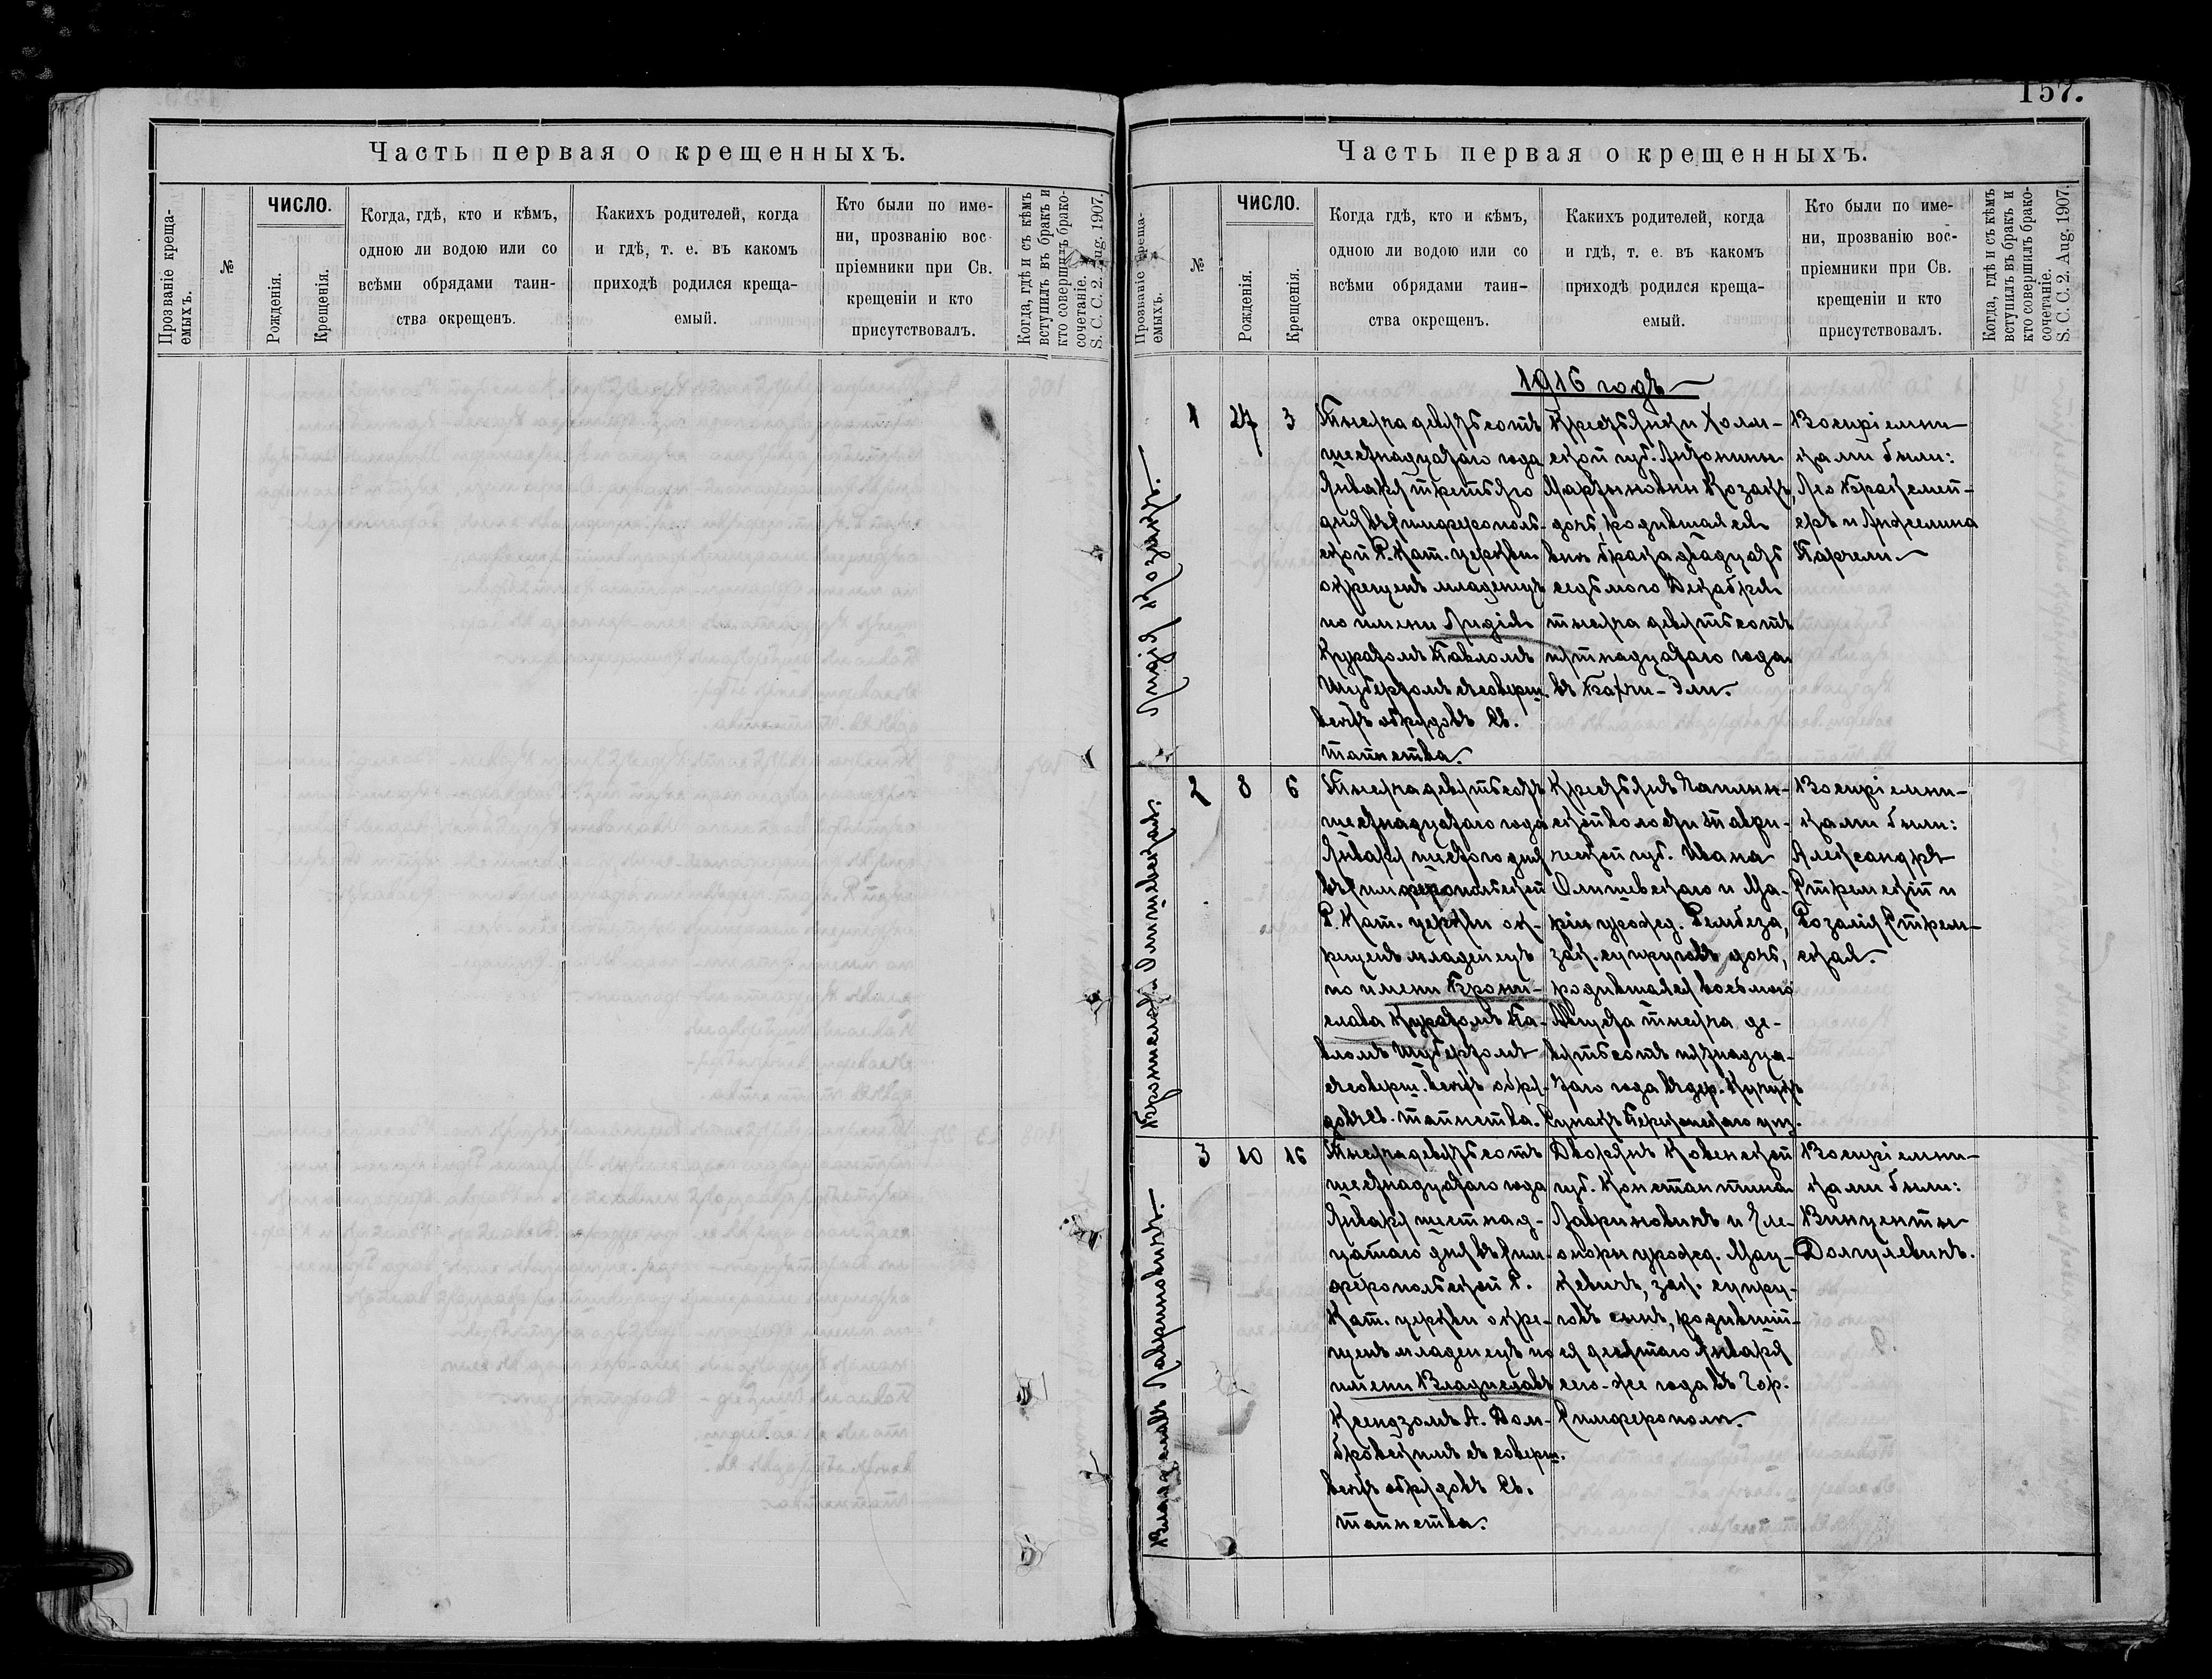 157.
Часть первая о крещенныхъ.
Прозваніе креща-
емыхъ.
№
ЧИСЛО.
Рожденія.
Крещенія.
Когда, гдѣ, кто и кѣмъ,
одною ли водою или со
всѣми обрядами таин-
ства окрещенъ.
Какихъ родителей, когда
и гдѣ, т. е. въ какомъ
приходѣ родился креща-
емый.
Кто были по име-
ни, прозванію вос-
пріемники при Св.
крещеніи и кто
присутствовалъ.
Когда, гдѣ и съ кѣмъ
вступилъ въ бракъ и
кто совершилъ брако-
сочетаніе.
S. C. C. 2. Aug. 1907.
Часть первая о крещенныхъ.
Прозваніе креща-
емыхъ.
№
ЧИСЛО.
Рожденія.
Крещенія.
Когда гдѣ, кто и кѣмъ,
одною ли водою или со
всѣми обрядами таин-
ства окрещенъ.
Какихъ родителей, когда
и гдѣ, т. е. въ какомъ
приходѣ родился креща-
емый.
Кто были по име-
ни, прозванію вос-
пріемники при Св.
крещеніи и кто
присутствовалъ.
Когда, гдѣ и съ кѣмъ
вступилъ въ бракъ и
кто совершилъ брако-
сочетаніе.
S. C. C. 2. Aug. 1907.
1916 годъ
Лидія Козакъ.
1
27
3
Тысяча девятьсотъ
шестнадцатаго года
Января третьяго
дня въ Симферополь-
ской Р. Кат. церкви
окрещенъ младенецъ
по имени Лидія
Куратомъ Павломъ
Шубертомъ съ соверш.
всѣхъ обрядовъ Св.
таинства.
Крестьянки Холм-
ской губ. Антонины
Мартыновны Козакъ,
дочь, родившаяся
внѣ брака двадцать
седьмого Декабря
тысяча девятьсотъ
пятнадцатаго года
въ Бахчи-Эли.
Воспріемни-
ками были:
Лео
и Анжелина
Карчели.
Брониславы Ольшевская.
2
8
6
Тысяча девятьсотъ
шестнадцатаго года
Января шестого дня
въ Симферопольской
Р. Кат. церкви ок-
рещенъ младенецъ
по имени Брони-
слава Куратомъ Па-
вломъ Шубертомъ
съ соверш. всѣхъ обря-
довъ Св. таинства.
Крестьянъ
ской волости Таври-
ческой губ. Ивана
Ольшевскаго и Ма-
ріи урожд. Рембеза,
зак. супруговъ дочь,
родившаяся восьмого
Августа тысяча де-
вятьсотъ пятнадца-
таго года въ дер. Кучукъ
Сунакъ Перекопскаго уѣз.
Воспріемни-
ками были:
Александръ
Стремскій и
Розалія Стрем-
ская.
Владиславъ Лавриновичъ.
3
10
16
Тысяча девятьсотъ
шестнадцатаго года
Января шестнад-
цатаго дня въ Сим-
феропольской Р.
Кат. церкви окре-
щенъ младенецъ по
имени Владиславъ
Ксендзомъ А. Дом-
бровскимъ съ соверш.
всѣхъ обрядовъ Св.
таинства.
Дворянъ Ковенской
губ. Константина
Лавриновичъ и Эле-
оноры урожд. Мац-
кевичъ, зак. супру-
говъ сынъ, родившій-
ся десятаго Января
сего-же года въ Гор.
Симферополи.
Воспріемни-
ками были:
Викентьи
Долгулевичъ.